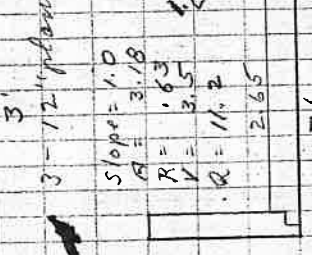 3'
3 - 12" plan
Slope = 1.0
A = 3.18
R = .63
V = 3.5
Q = 11.2
2 65